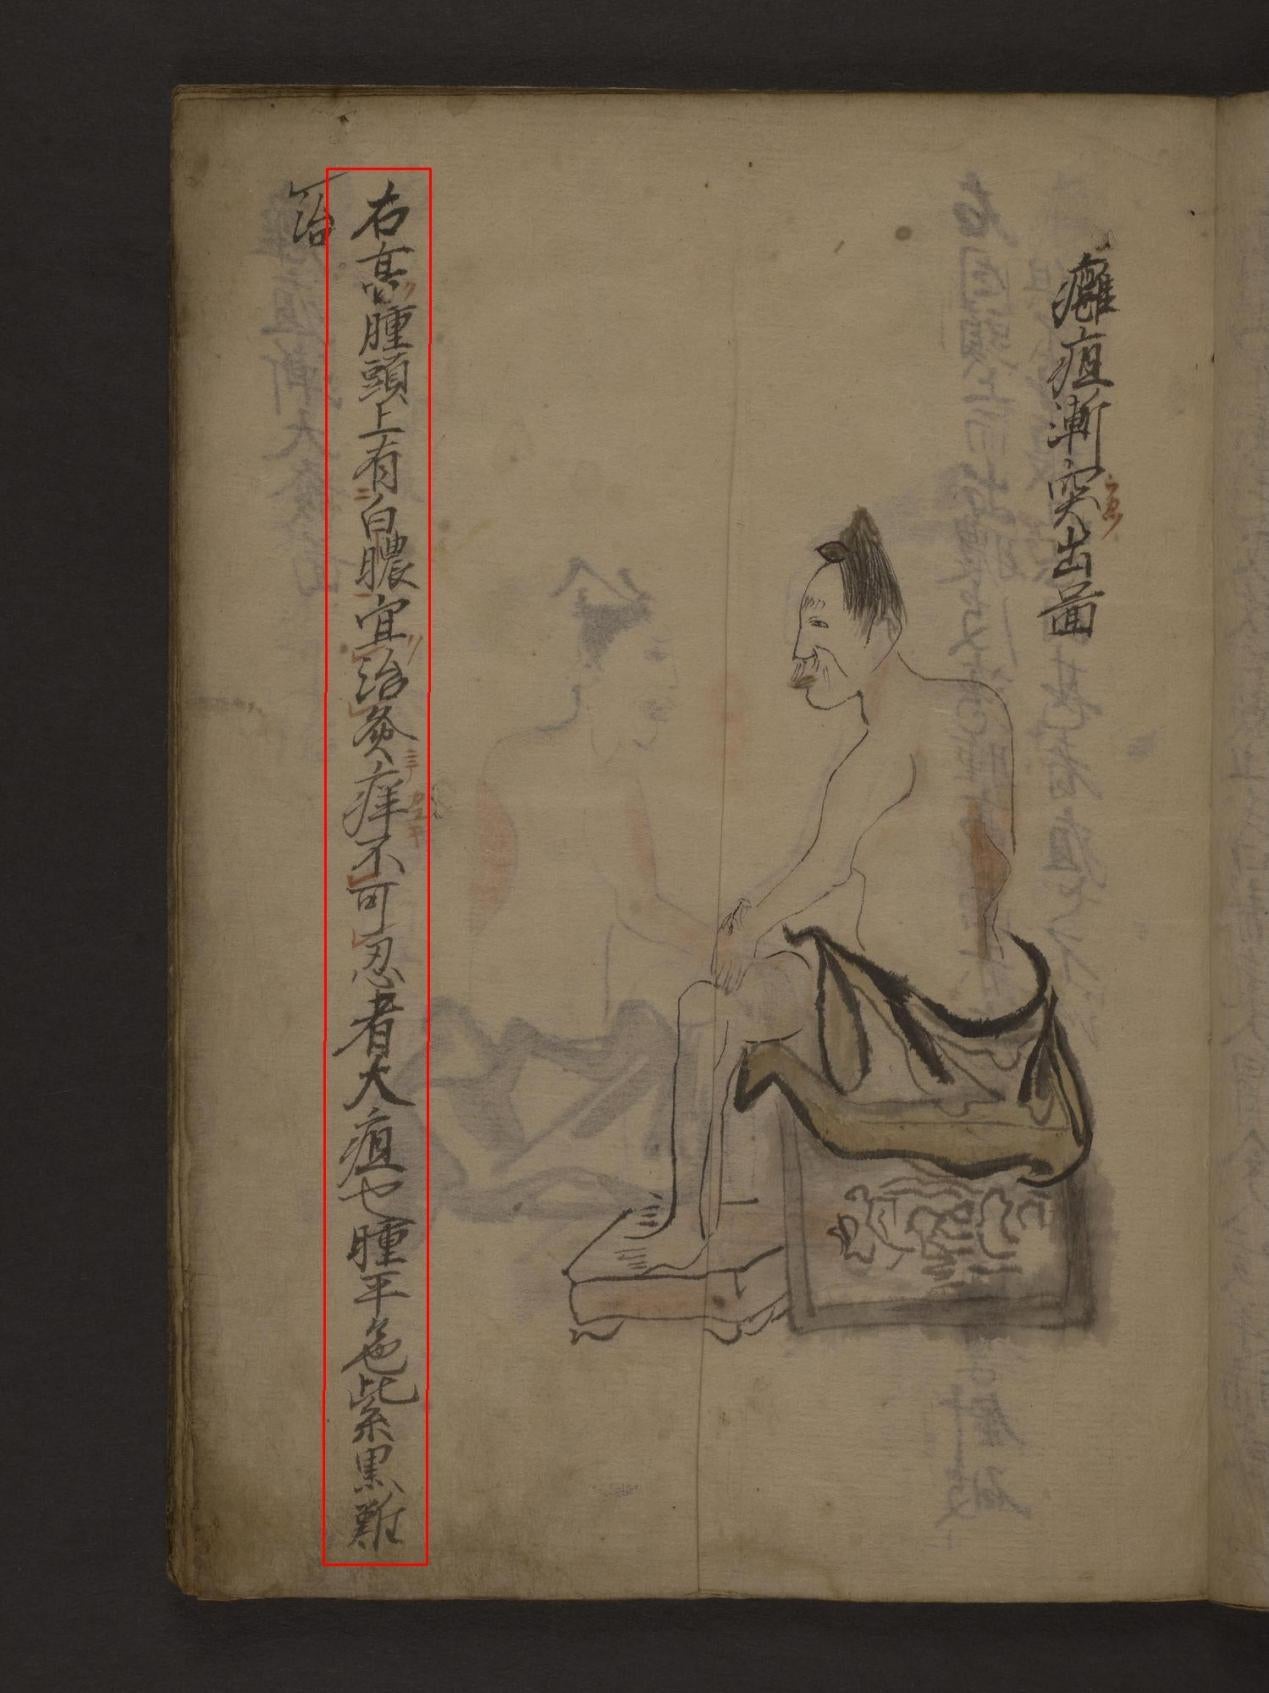 癰疽漸突出啚
右高腫頭上有白膿宜治灸痒不可忍者大疽也腫平色紫黒難
治